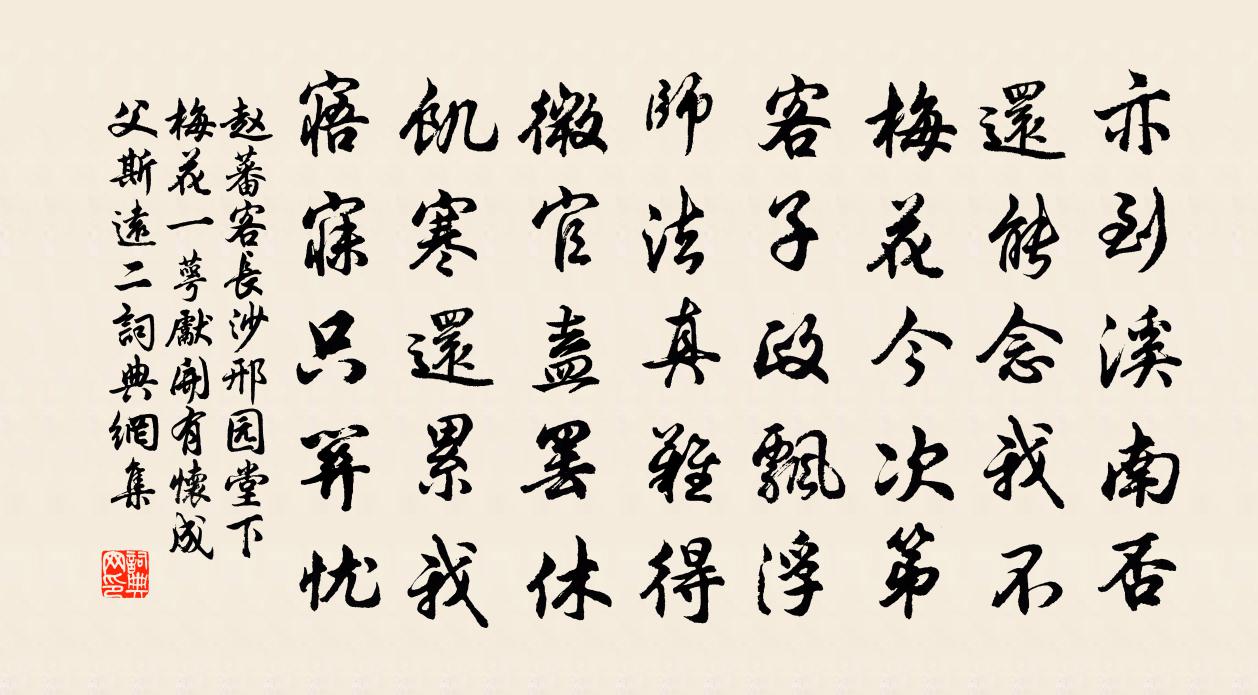 亦到溪南否
還能念我不
梅花今次第
客子政飄浮
師法真難得
微官盍罷休
飢寒還累我
寤寐只箅忧
赵蕃客長沙邢园堂下
梅花一萼獻開有懷成
父斯遠二詞典網集
詞典網印